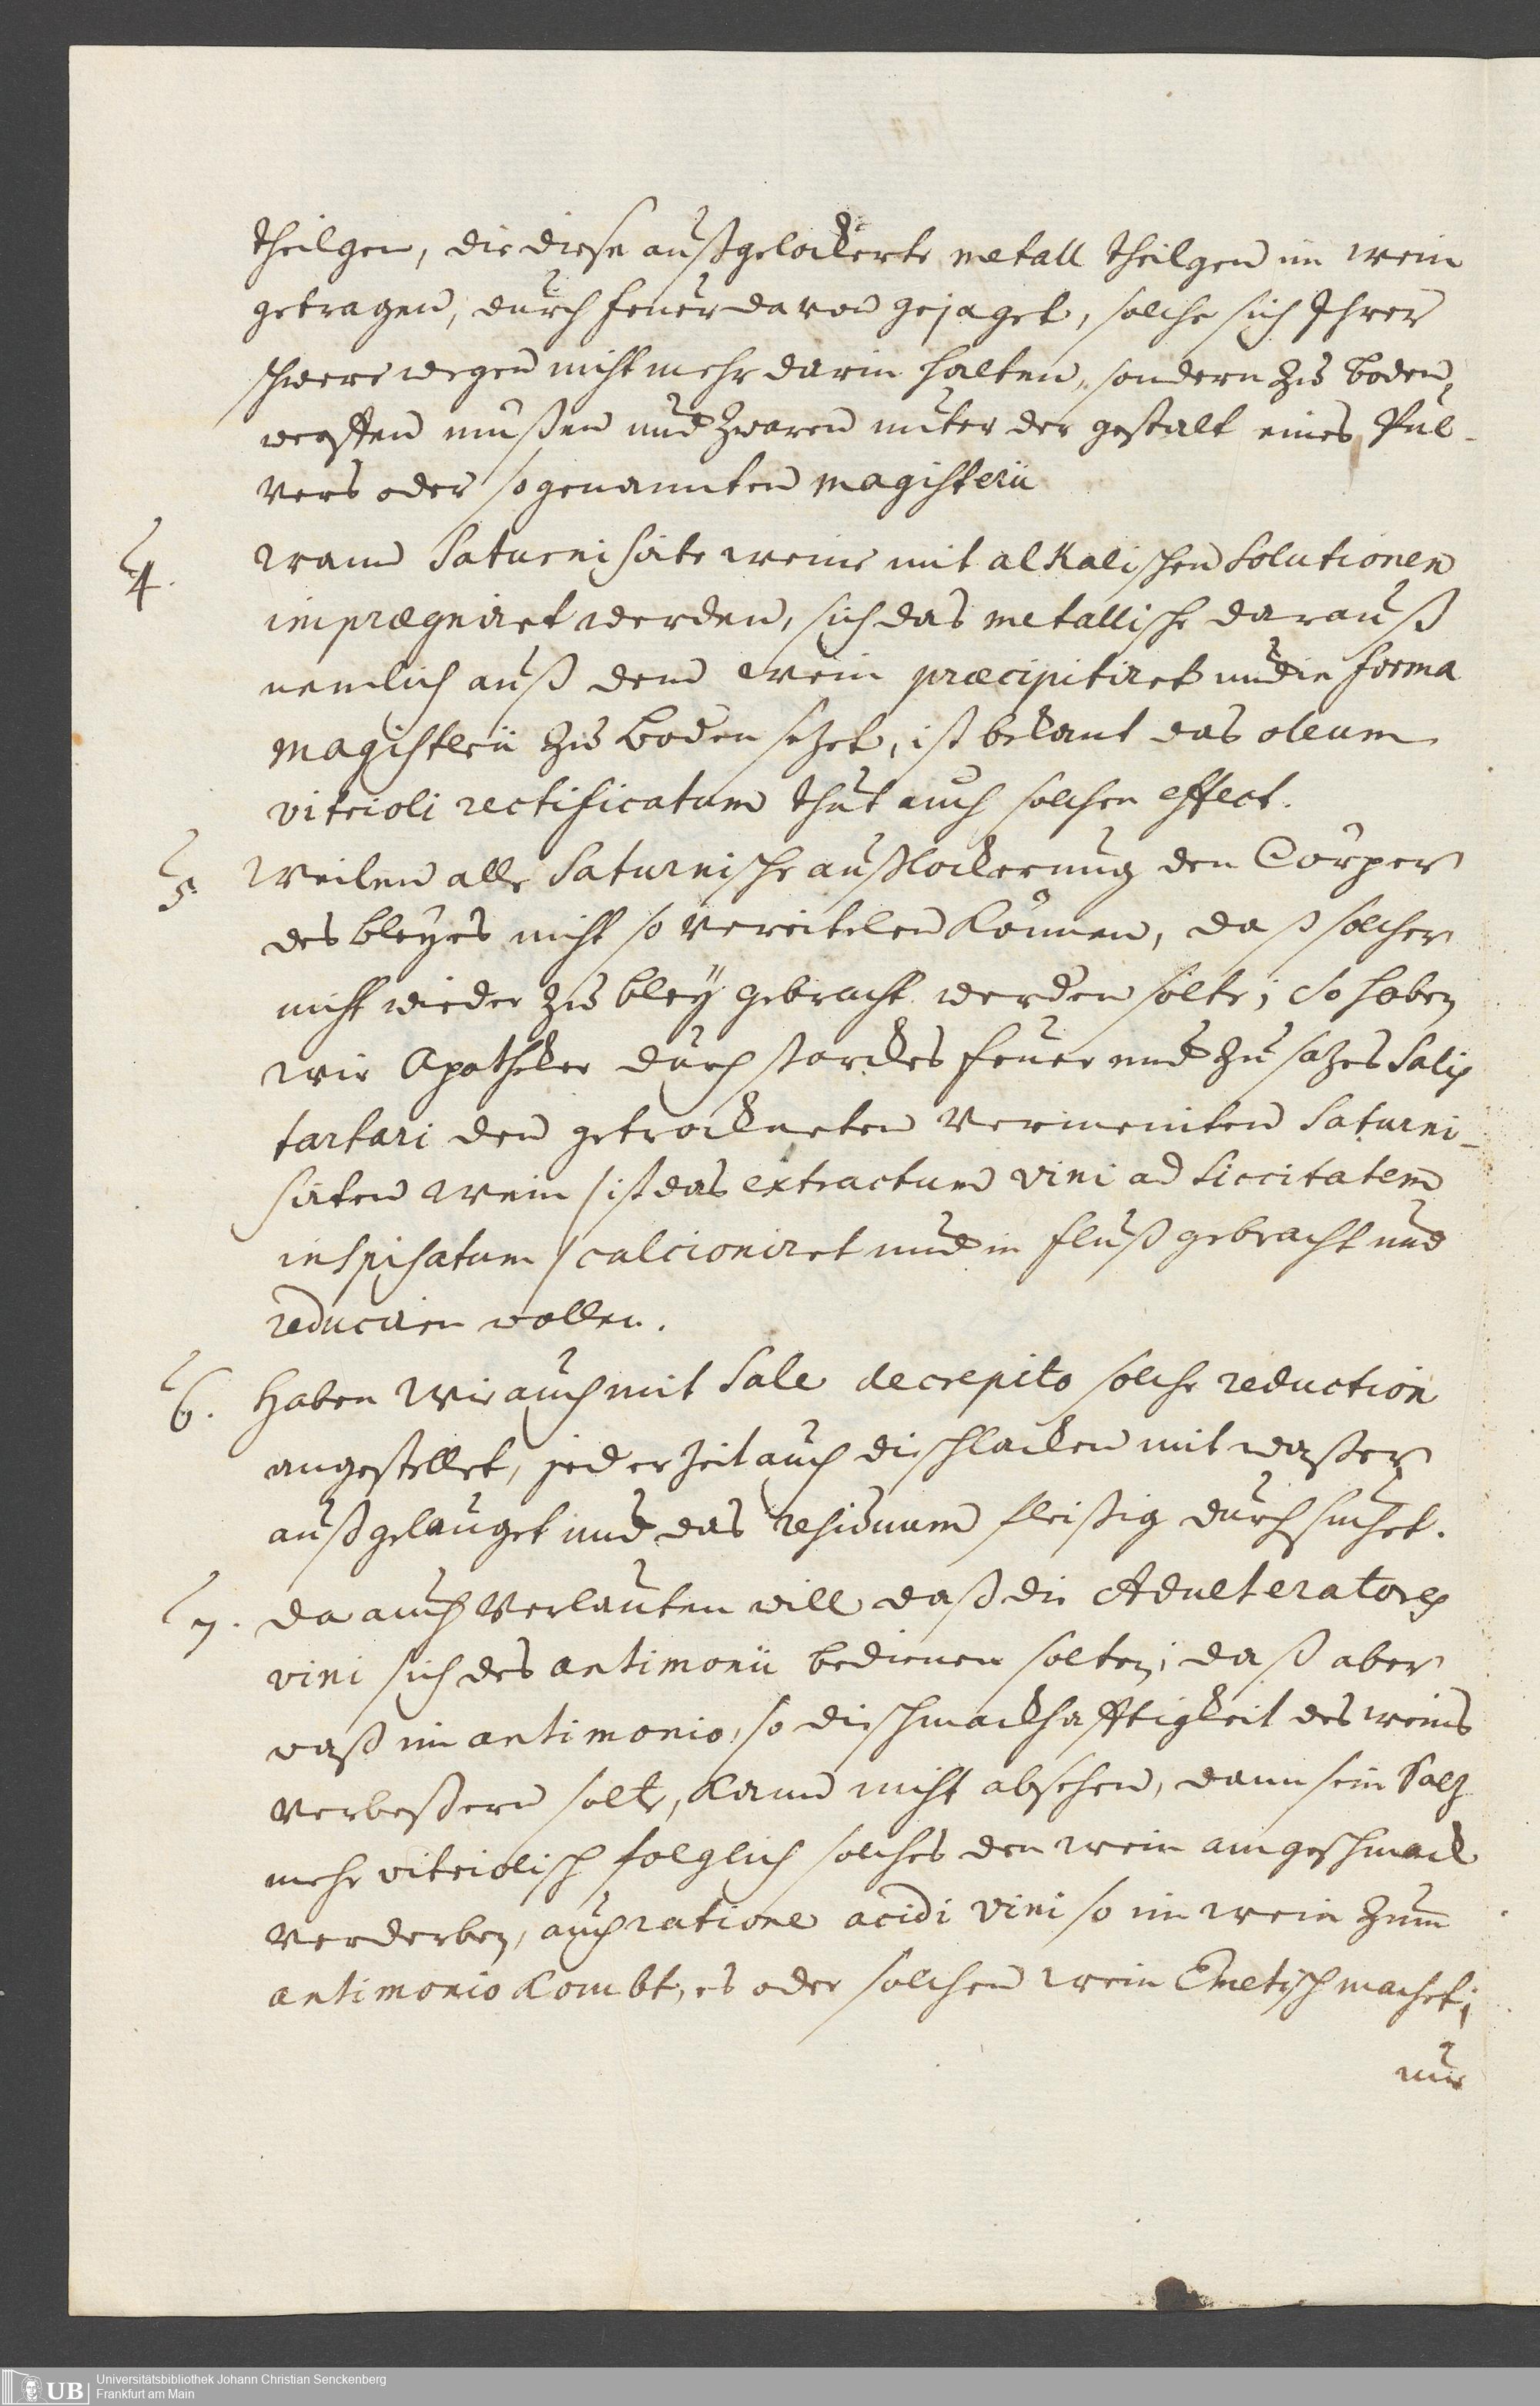 theilgen, die diese außgelockerte metall theilgen im wein
getragen, durch feuer davon gejaget, solche sich Ihrer
schwere wegen nicht mehr darin halten, sondern zu boden
werffen mußen und zwaren unter der gestalt eines Pul-
vers oder so genannten magisterii
4. wann Saturnisirte weine mit alkalischen Solutionen
imprægniret werden, sich das metallische darauß
nemlich auß dem wein præcipitiret und in forma
magisterii zu boden setzet, ist bekant das oleum
vitrioli rectificatum thut auch solchen effect.
5. Weilen alle Saturnische außlockerung den Cörper
des bleyes nicht so vereitelen können, daß solcher
nicht wieder zu bley gebracht werden solte; So haben
wir Apotheker durch starckes feuer und zusatzes Salis
tartari den getrockneten vermeinten Saturni-
sirten wein /ist das extractum vini ad siccitatem
inspisatum/ calcioniret und in fluß gebracht und
reduciren wollen.
6. Haben wir auch mit Sale decrepito solche reduction
angestellet, jederzeit auch die schlacken mit waßer
außgelauget und das residuum fleißig durchsuchet.
7. da auch verlauten will daß die Adulteratores
vini sich des antimonii bedienen solten; daß aber
waß im antimonio, so die schmackhafftigkeit des weins
verbeßern solte, kann nicht absehen, dann sein Saltz
mehr vitriolisch folglich solches den wein am geschmack
verderben, auch ratione acidi vini so im wein zum
antimonio kombt, es oder solchen wein Emetisch machet;
nur
Universitätsbibliothek Johann Christian Senckenberg
Frankfurt am Main
UB